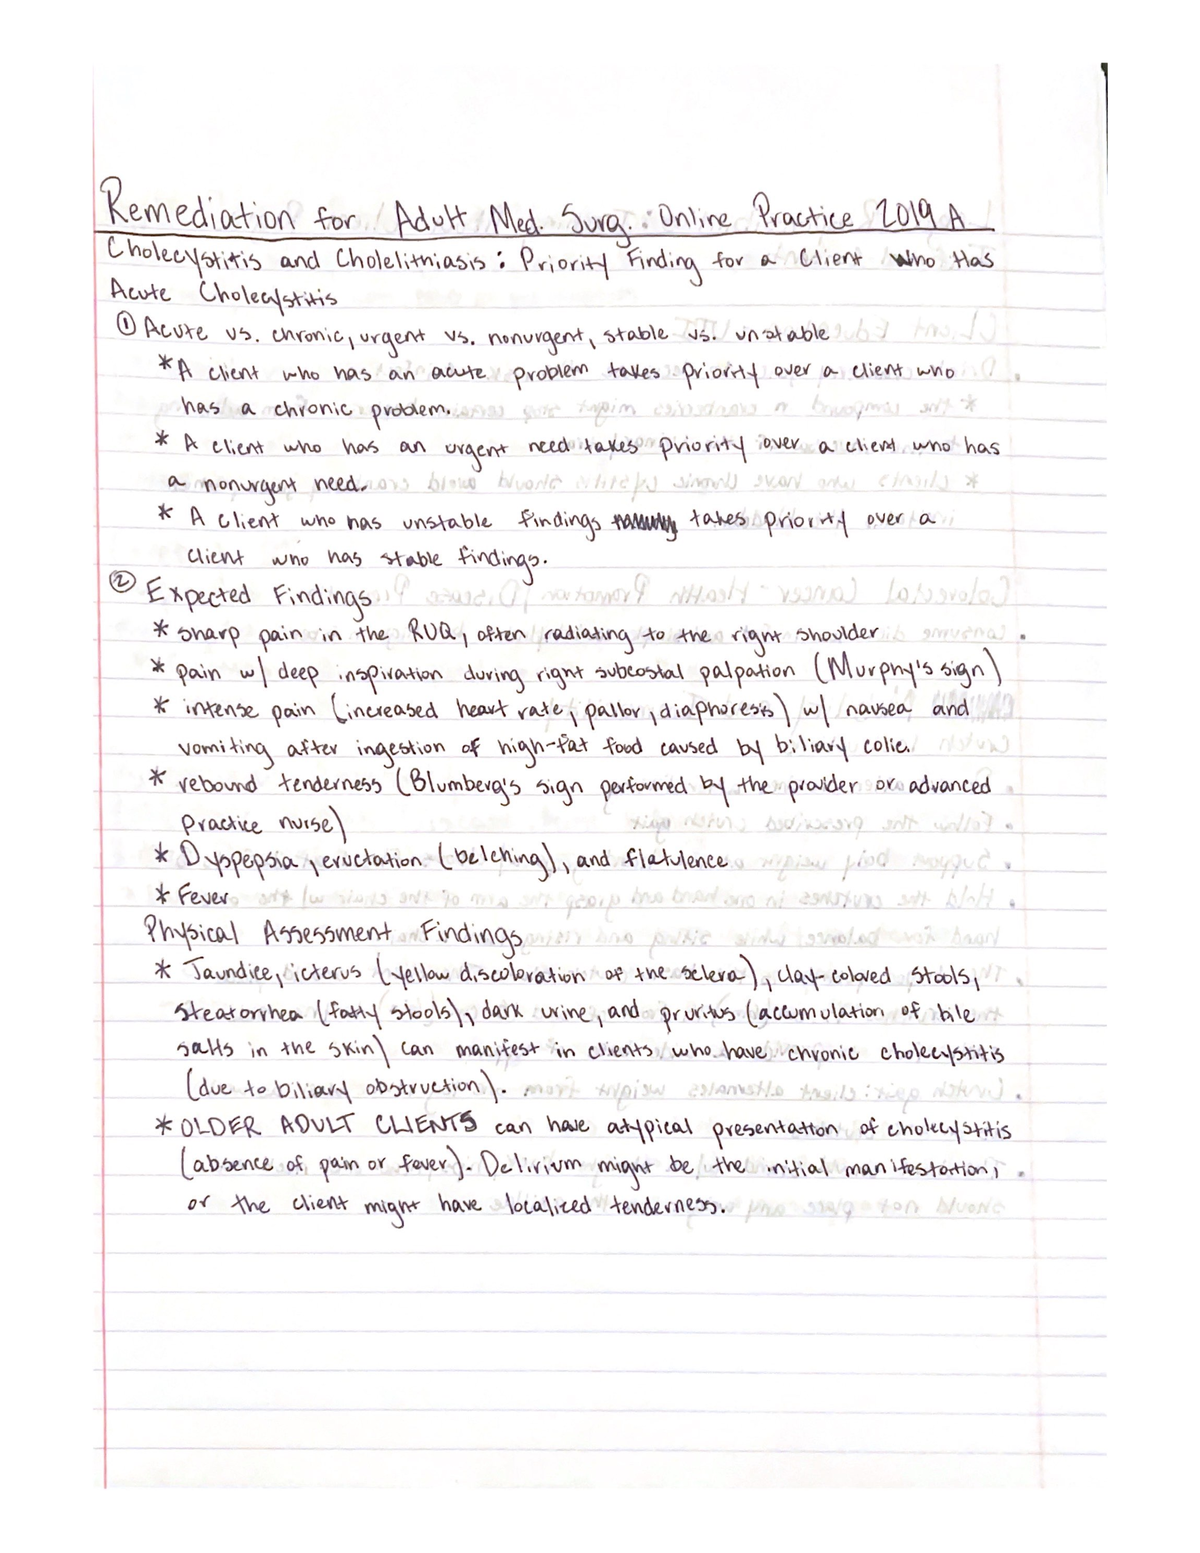 Remediation for Adult Med. Surg. Online Practice 2019 A
Cholecystitis and Cholelithiasis: Priority Finding for a Client Who Has
Acute Cholecystitis
① Acute vs. chronic, urgent vs. nonurgent, stable vs. unstable
* A client who has an acute problem takes priority over a client who
has a chronic problem.
* A client who has an urgent need takes priority over a client who has
a nonurgent need.
* A client who has unstable findings takes priority over a
client who has stable findings.
② Expected Findings
* sharp pain in the RUQ, often radiating to the right shoulder
* pain w/ deep inspiration during right subcostal palpation (Murphy's sign)
* intense pain (increased heart rate, pallor, diaphoresis) w/ nausea and
vomiting after ingestion of high-fat food caused by biliary colic.
* rebound tenderness (Blumberg's sign performed by the provider or advanced
practice nurse)
* Dyspepsia, eructation (belching), and flatulence
* Fever
Physical Assessment Findings
* Jaundice, icterus (yellow discoloration of the sclera), clay-colored stools,
steatorrhea (fatty stools), dark urine, and pruritus (accumulation of bile
salts in the skin) can manifest in clients who have chronic cholecystitis
(due to biliary obstruction).
* OLDER ADULT CLIENTS can have atypical presentation of cholecystitis
(absence of pain or fever). Delirium might be the initial manifestation,
or the client might have localized tenderness.